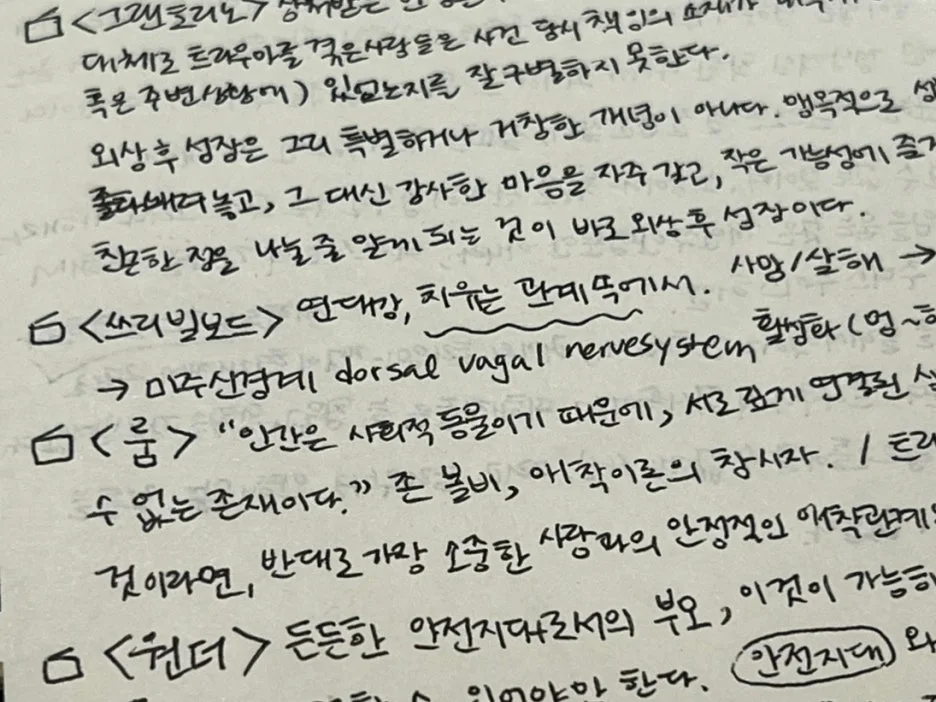 <그랜토리노> 상처받은
대체로 트라우마를 겪은 사람들은 사건 당시 책임의 소재가
혹은 주변상황에) 있었는지를 잘 구별하지 못한다.
외상 후 성장은 그리 특별하거나 거창한 개념이 아니다. 맹목적으로
놓고, 그 대신 감사한 마음을 자주 갖고, 작은 가능성에
친근한 정을 나눌 줄 알게 되는 것이 바로 외상 후 성장이다.
<쓰리빌보드> 연대감, 치유는 관계 속에서. 사망/살해 →
→ 미주신경계 dorsal vagal nervesystem 활성화 (멍~
<룸> "인간은 사회적 동물이기 때문에, 서로 깊게 연결된
수 없는 존재이다." 존 볼비, 애착이론의 창시자. /
것이라면, 반대로 가장 소중한 사람과의 안정적인 애착관계
<원더> 든든한 안전지대로서의 부모, 이것이 가능
있어야만 한다. 안전지대 와